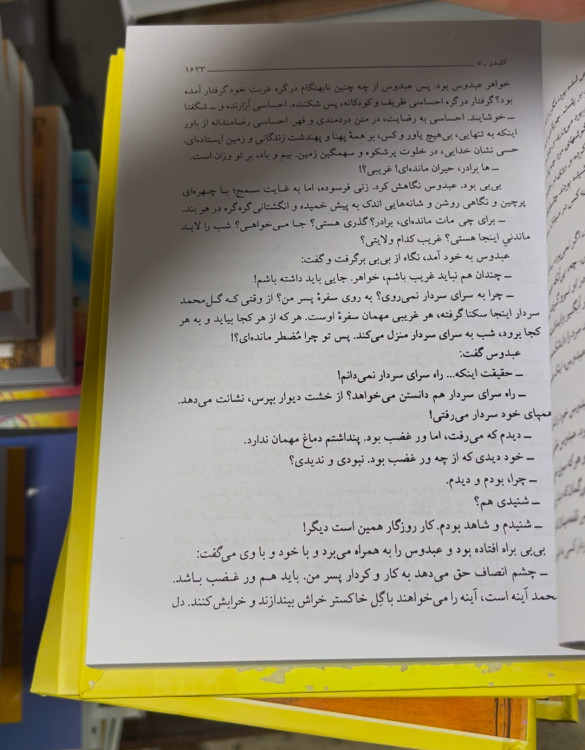 کلیدر ــ ۷ ۱۶۲۳
خواهر عبدوس بود. پس عبدوس از چه چنین نابهنگام در گره غربت خود گرفتار آمده
بود؟ گرفتار در گره احساسی ظریف و کودکانه، پس شکننده. احساسی آزارنده و ــ شگفتا
ــ خوشایند. احساسی به رضایت، در متن دردمندی و قهر. احساسی رضامندانه از باور
اینکه به تنهایی، بی‌هیچ یاور و کس، بر همهٔ پهنا و پهندشت زندگانی و زمین ایستاده‌ای.
حسی نشان خدایی، در خلوت پرشکوه و سهمگین زمین. بیم و باد، بر تو وزان است.
ــ ها برادر، حیران مانده‌ای! غریبی؟!
بی‌بی بود. عبدوس نگاهش کرد. زنی فرسوده، اما به غایت سمج؛ با چهره‌ای
پرچین و نگاهی روشن و شانه‌هایی اندک به پیش خمیده و انگشتانی گره‌گره در هر بند.
ــ برای چی مات مانده‌ای، برادر؟ گذری هستی؟ جا می‌خواهی؟ شب را لابد
ماندنی اینجا هستی؟ غریب کدام ولایتی؟
عبدوس به خود آمد، نگاه از بی‌بی برگرفت و گفت:
ــ چندان هم نباید غریب باشم، خواهر. جایی باید داشته باشم!
ــ چرا به سرای سردار نمی‌روی؟ به روی سفرهٔ پسر من؟ از وقتی که گل‌محمد
سردار اینجا سکنا گرفته، هر غریبی مهمان سفرهٔ اوست. هر که از هر کجا بیاید و به هر
کجا برود، شب به سرای سردار منزل می‌کند. پس تو چرا مُضطر مانده‌ای؟!
عبدوس گفت:
ــ حقیقت اینکه... راه سرای سردار نمی‌دانم!
ــ راه سرای سردار هم دانستن می‌خواهد؟ از خشت دیوار بپرس، نشانت می‌دهد.
همپای خود سردار می‌رفتی!
ــ دیدم که می‌رفت، اما ور غضب بود. پنداشتم دماغ مهمان ندارد.
ــ خود دیدی که از چه ور غضب بود. نبودی و ندیدی؟
ــ چرا، بودم و دیدم.
ــ شنیدی هم؟
ــ شنیدم و شاهد بودم. کار روزگار همین است دیگر!
بی‌بی براه افتاده بود و عبدوس را به همراه می‌برد و با خود و با وی می‌گفت:
ــ چشم انصاف حق می‌دهد به کار و کردار پسر من. باید هم ور غضب باشد.
محمد آینه است، آینه را می‌خواهند با گِل خاکستر خراش بیندازند و خرابش کنند. دل